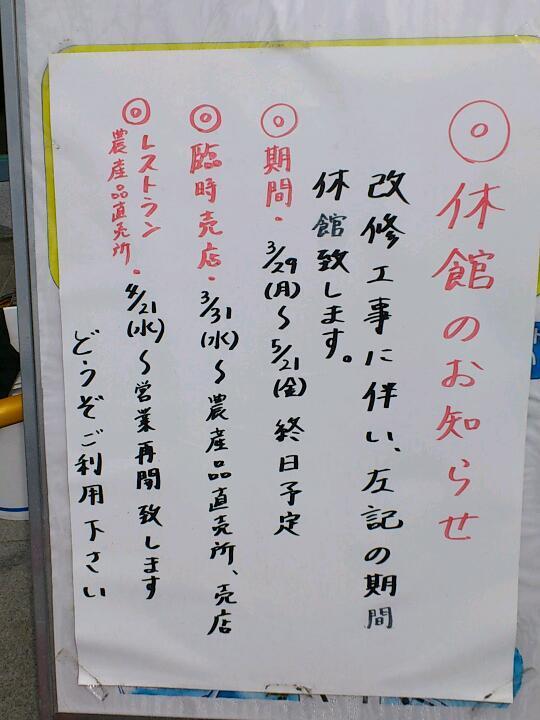 ◎休館のお知らせ
改修工事に伴い、左記の期間
休館致します。
◎期間・3/29(月)〜5/21(金)終日予定
◎臨時売店・3/31(水)〜農産品直売所、売店
◎レストラン
農産品直売所・4/21(水)〜営業再開致します
どうぞご利用下さい